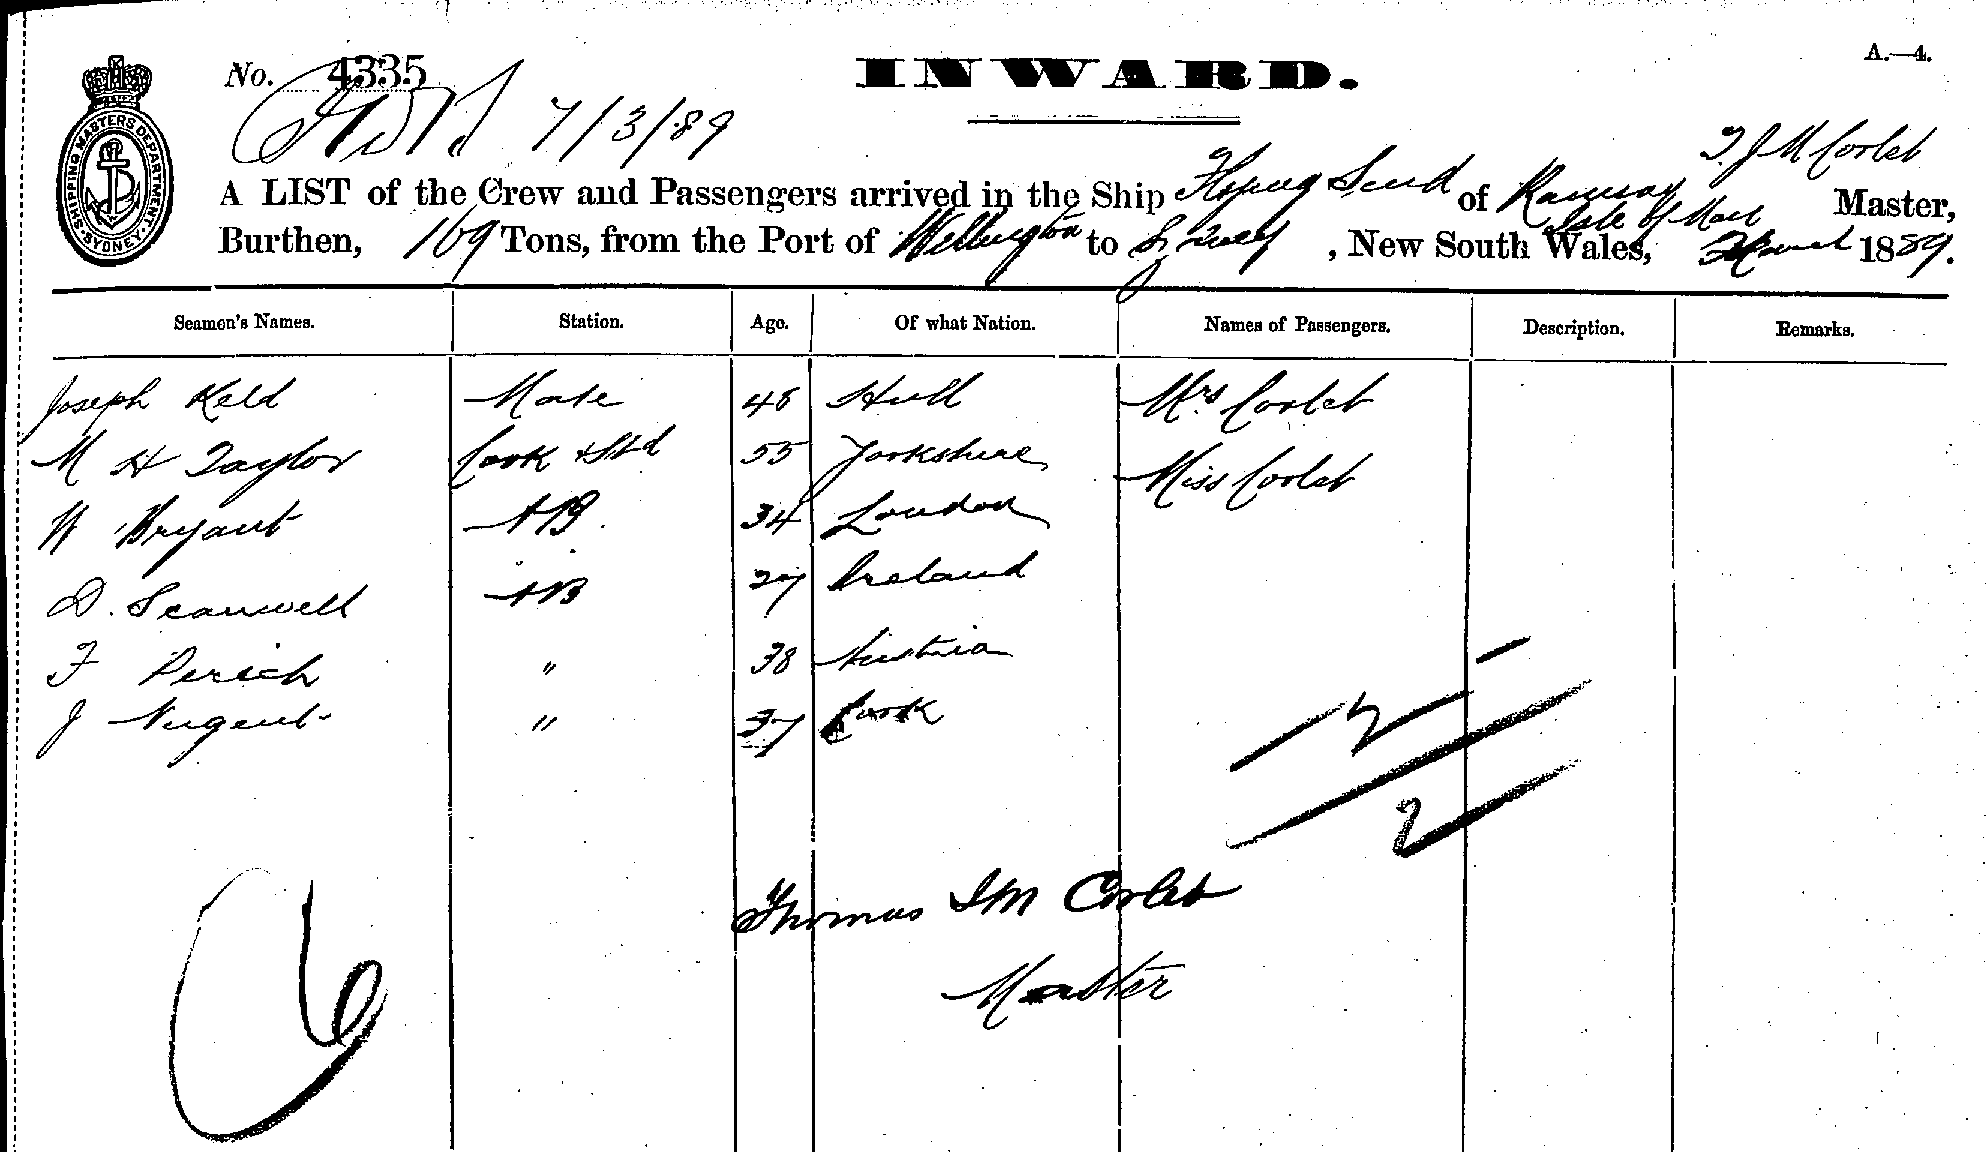 A.—4.
No. 4335
INWARD.
7/3/89
SHIPPING MASTERS DEPARTMENT SYDNEY
T. J M Corlet
A LIST of the Crew and Passengers arrived in the Ship Flying Scud of Ramsay Master,
Isle of Man
Burthen, 169 Tons, from the Port of Wellington to Sydney, New South Wales, 1889.
Seamen's Names. Station. Age. Of what Nation. Names of Passengers. Description. Remarks.
Joseph Keld Mate 48 Hull Mrs Corlet
M H Taylor Cook & Std 55 Yorkshire Miss Corlet
W Bryant AB. 34 London
D. Scanwell AB 27 Ireland
F Perich " 38 Austria
J Nugent " 37 Cork
2
2
Thomas J M Corlet
Master
6